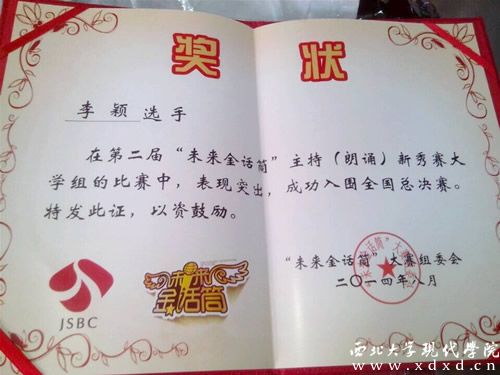 奖 状
李颖选手
在第二届“未来金话筒”主持（朗诵）新秀赛大
学组的比赛中，表现突出，成功入围全国总决赛。
特发此证，以资鼓励。
“未来金话筒”大赛组委会
二〇一四年八月
JSBC
未来
金话筒
西北大学现代学院
www.xdxd.cn